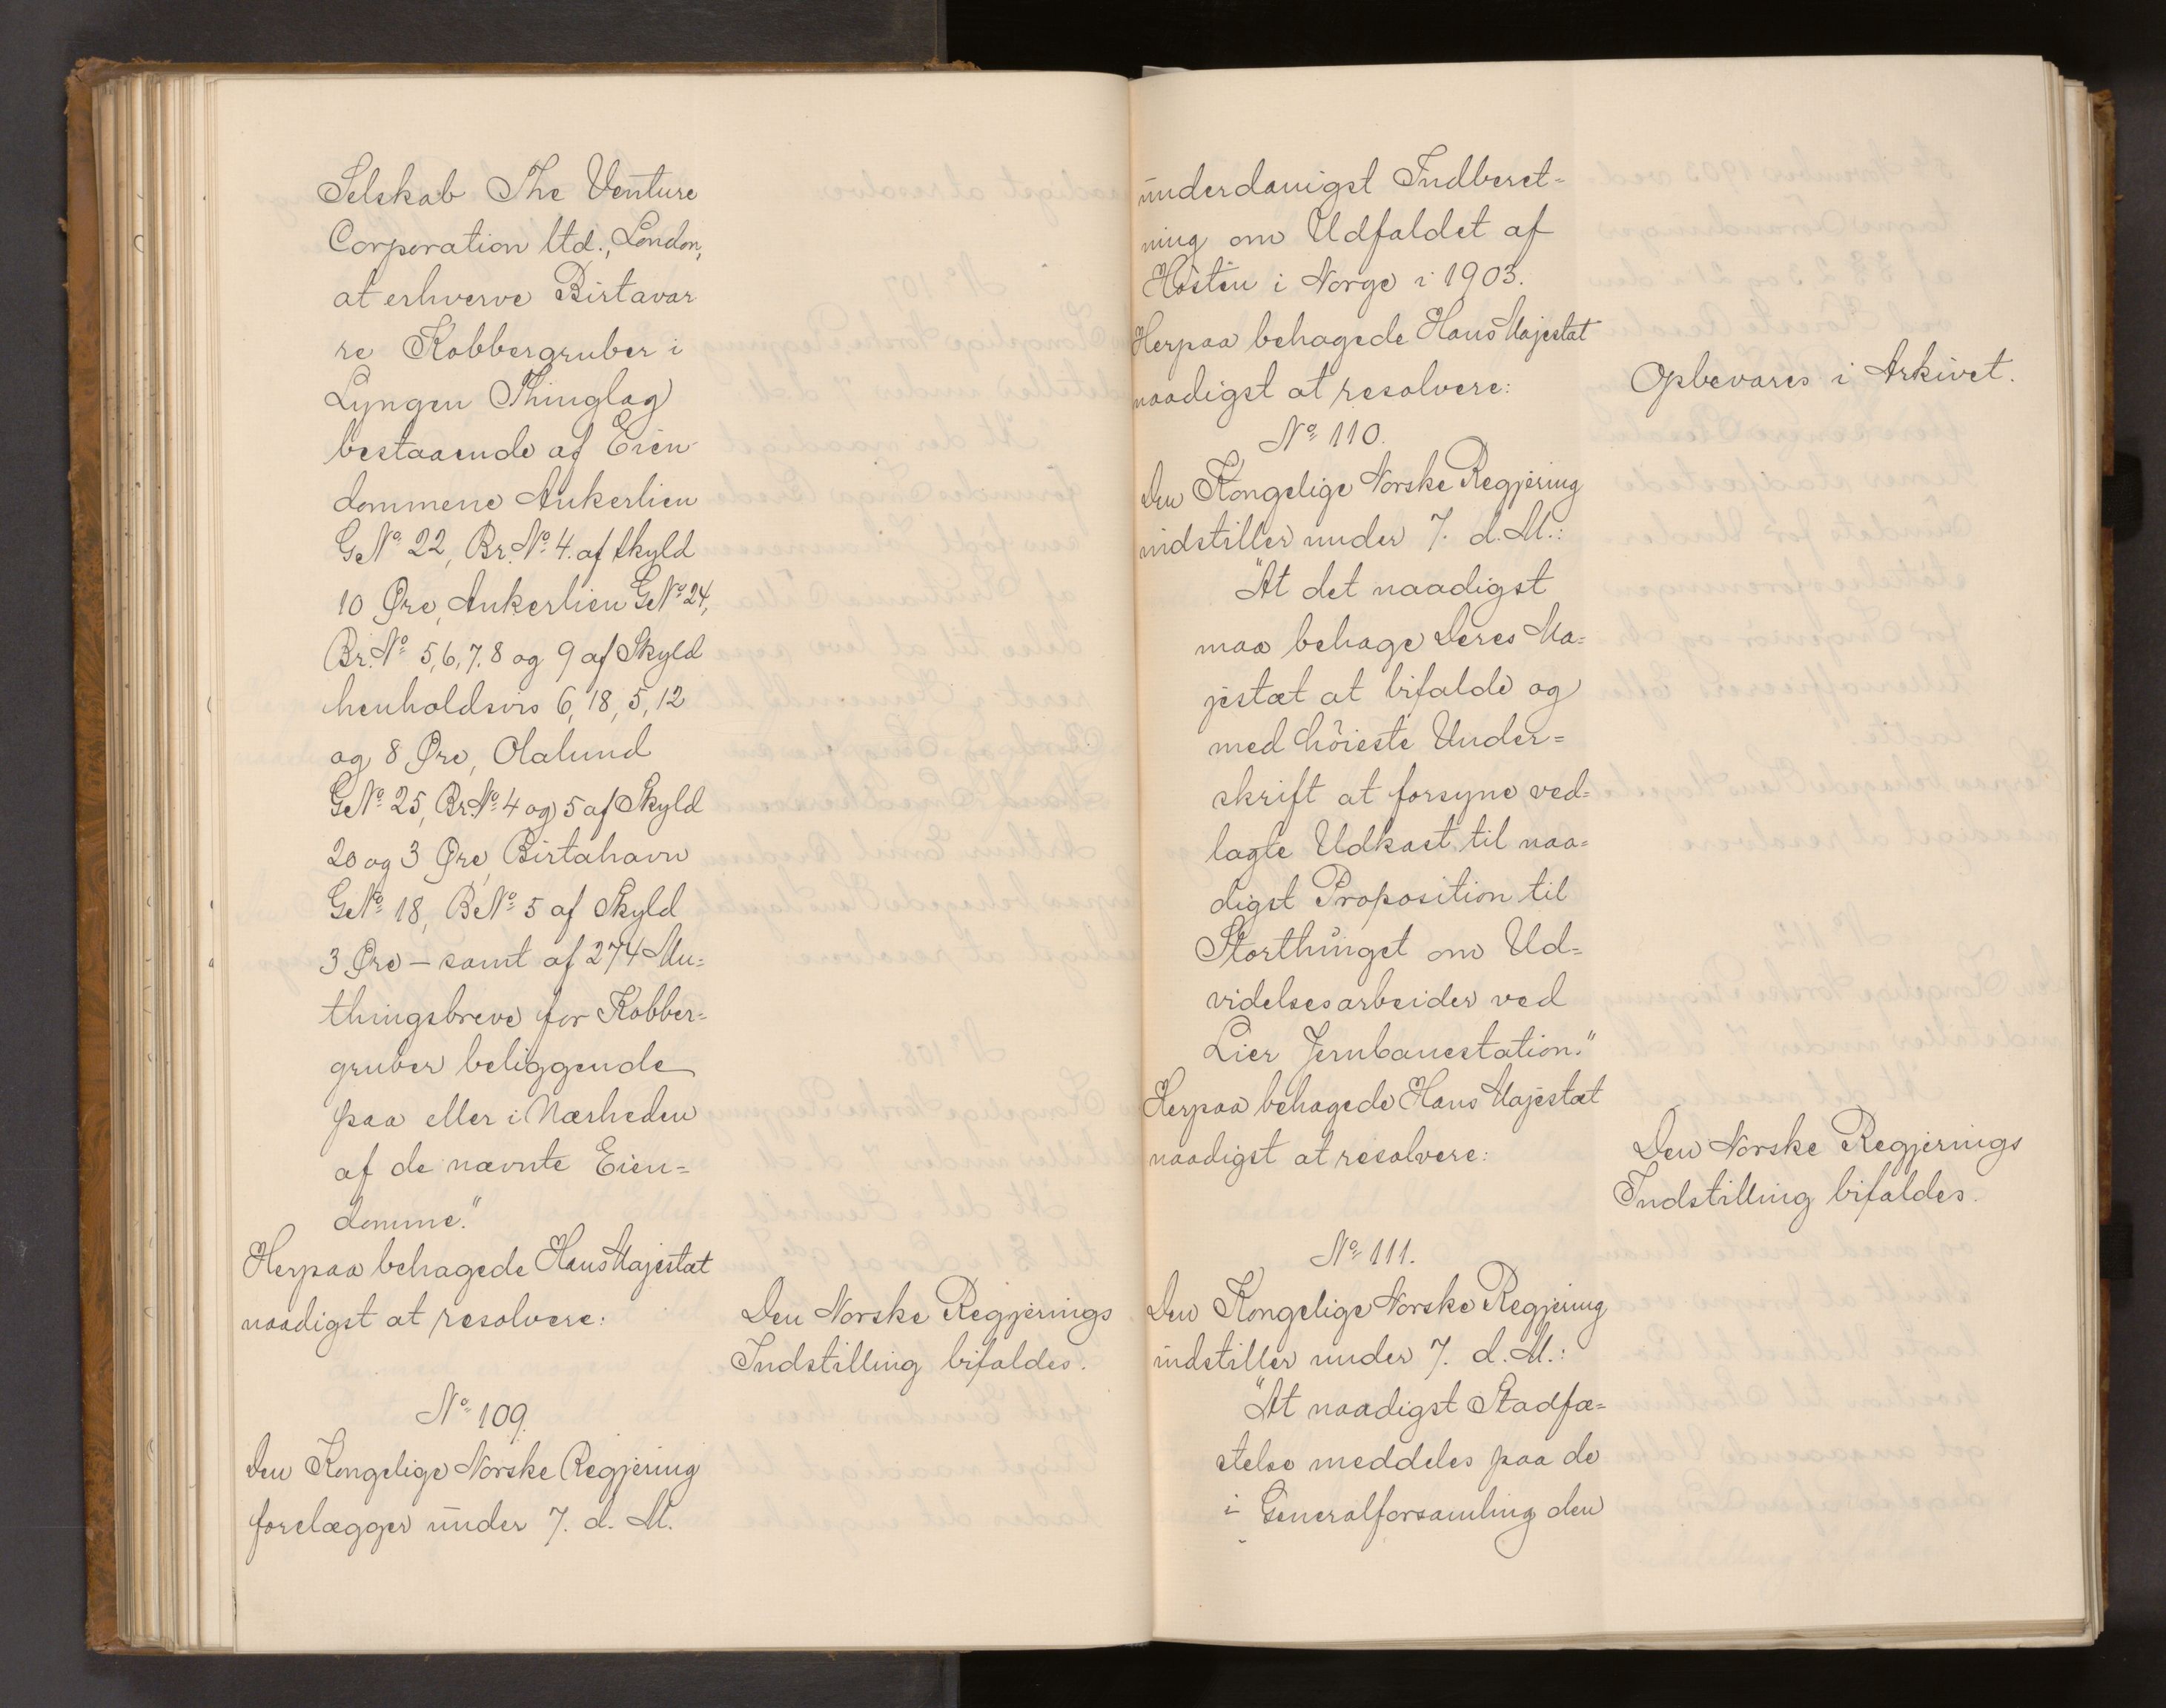 Selskab The Venture
Corporation ltd., London,
at erhverve Birtavar
re Kobbergruber i
Lyngen Thinglag
bestaaende af Eien
dommene Ankerlien
G.No. 22, Br.No. 4. af Skyld
10 Øre, Ankerlien G.No. 24,
Br.No. 5, 6, 7. 8 og 9 af Skyld
henholdsvis 6, 18, 5, 12
og 8 Øre, Olalund
G.No. 25, Br.No. 4 og 5 af Skyld
20 og 3 Øre, Birtahavn
G.No. 18, B.No. 5 af Skyld
3 Øre – samt af 274 Mu=
thingsbreve for Kobber=
gruber beliggende
paa eller i Nærheden
af de nævnte Eien=
domme."
Herpaa behagede Hans Majestæt
naadigst at resolvere:
Den Norske Regjerings
Indstilling bifaldes.
No. 109.
Den Kongelige Norske Regjering
forelægger under 7. d. M.
underdanigst Indberet=
ning om Udfaldet af
Høsten i Norge i 1903.
Herpaa behagede Hans Majestæt
naadigst at resolvere:
Opbevares i Arkivet.
No. 110.
Den Kongelige Norske Regjering
indstiller under 7. d. M.:
"At det naadigst
maa behage Deres Ma=
jestæt at bifalde og
med høieste Under=
skrift at forsyne ved=
lagte Udkast til naa=
digst Proposition til
Storthinget om Ud=
videlsesarbeider ved
Lier Jernbanestation."
Herpaa behagede Hans Majestæt
naadigst at resolvere:
Den Norske Regjerings
Indstilling bifaldes.
No. 111.
Den Kongelige Norske Regjering
indstiller under 7. d. M.:
"At naadigst Stadfæ=
stelse meddeles paa de
i Generalforsamling den